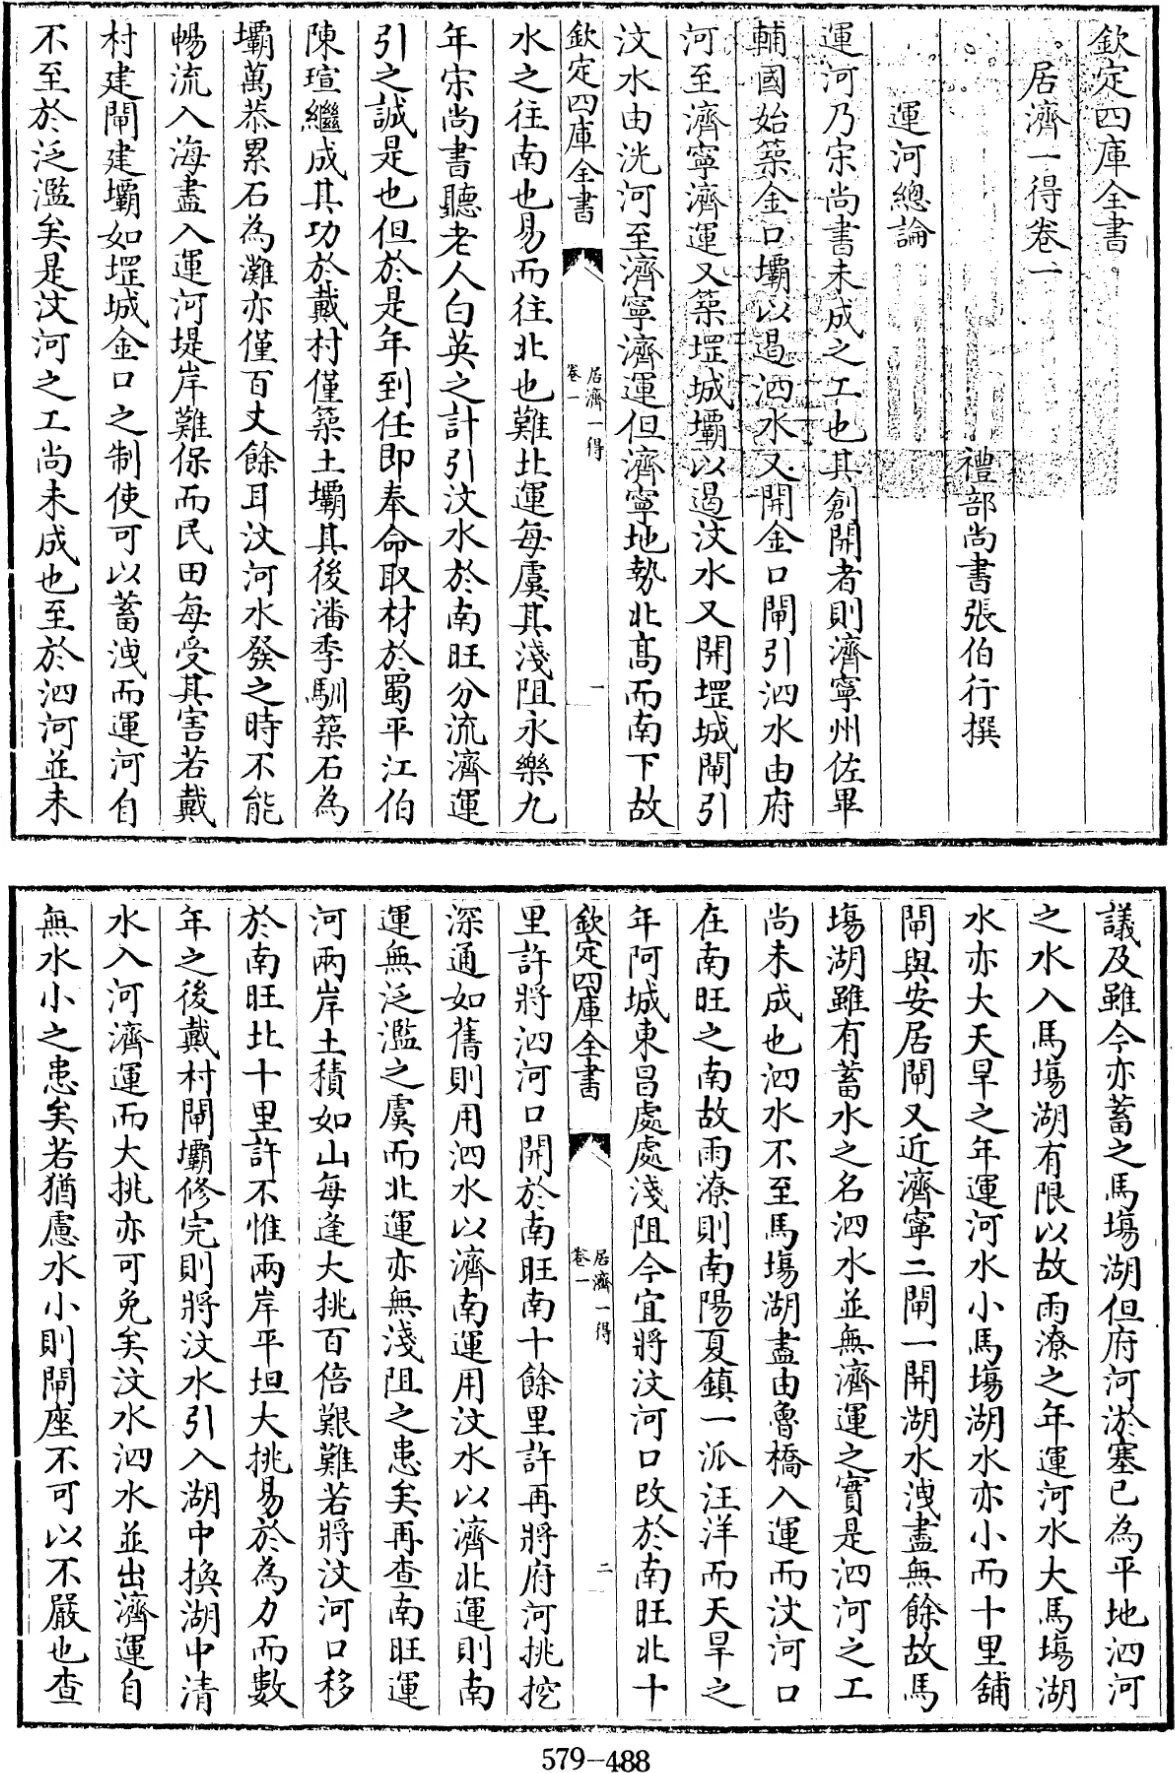 欽定四庫全書
居濟一得卷一
禮部尚書張伯行撰
運河總論
運河乃宋尚書未成之工也其創開者則濟寧州佐畢
輔國始築金口壩以遏泗水又開金口閘引泗水由府
河至濟寧濟運又築堽城壩以遏汶水又開堽城閘引
汶水由洸河至濟寧濟運但濟寧地勢北高而南下故
欽定四庫全書
居濟一得
卷一
一
水之往南也易而往北也難北運每虞其淺阻永樂九
年宋尚書聽老人白英之計引汶水於南旺分流濟運
引之誠是也但於是年到任即奉命取材於蜀平江伯
陳瑄繼成其功於戴村僅築土壩其後潘季馴築石為
壩萬恭累石為灘亦僅百丈餘耳汶河水發之時不能
暢流入海盡入運河堤岸難保而民田每受其害若戴
村建閘建壩如堽城金口之制使可以蓄洩而運河自
不至於泛濫矣是汶河之工尚未成也至於泗河並未
議及雖今亦蓄之馬塲湖但府河淤塞已為平地泗河
之水入馬塲湖有限以故雨潦之年運河水大馬塲湖
水亦大天旱之年運河水小馬塲湖水亦小而十里舖
閘與安居閘又近濟寧二閘一開湖水洩盡無餘故馬
塲湖雖有蓄水之名泗水並無濟運之實是泗河之工
尚未成也泗水不至馬塲湖盡由魯橋入運而汶河口
在南旺之南故雨潦則南陽夏鎮一派汪洋而天旱之
年阿城東昌處處淺阻今宜將汶河口改於南旺北十
欽定四庫全書
居濟一得
卷一
二
里許將泗河口開於南旺南十餘里許再將府河挑挖
深通如舊則用泗水以濟南運用汶水以濟北運則南
運無泛濫之虞而北運亦無淺阻之患矣再查南旺運
河兩岸土積如山每逢大挑百倍艱難若將汶河口移
於南旺北十里許不惟兩岸平坦大挑易於為力而數
年之後戴村閘壩修完則將汶水引入湖中換湖中清
水入河濟運而大挑亦可免矣汶水泗水並出濟運自
無水小之患矣若猶慮水小則閘座不可以不嚴也查
579-488